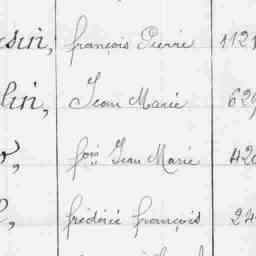 sin, françois Pierre 112
lin, Jean Marie 629
fois Jean Marie 420
frédéric françois 24